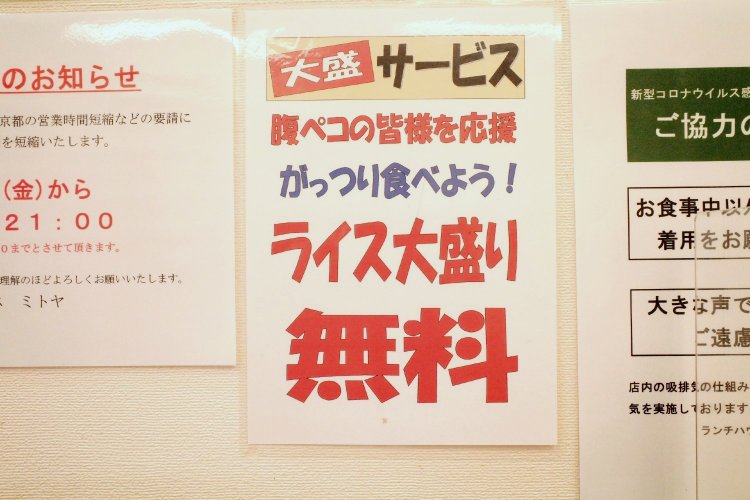 のお知らせ
京都の営業時間短縮などの要請に
を短縮いたします。
(金)から
21:00
0までとさせて頂きます。
理解のほどよろしくお願いいたします。
ミトヤ
大盛サービス
腹ペコの皆様を応援
がっつり食べよう!
ライス大盛り
無料
新型コロナウイルス感
ご協力の
お食事中以
着用をお願
大きな声で
ご遠慮
店内の吸排気の仕組み
気を実施しております
ランチハウ